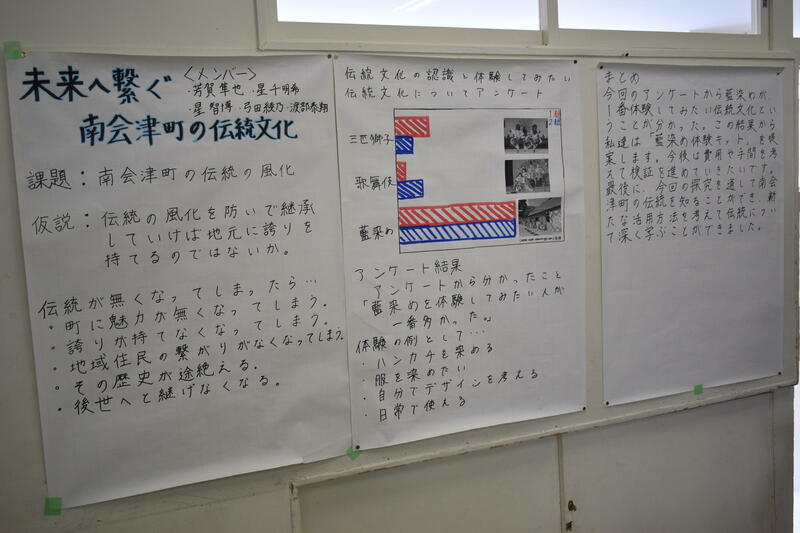 未来へ繋ぐ
南会津町の伝統文化
<メンバー>
・芳賀隼也 ・星千明希
・星智博 ・弓田綾乃 ・渡部泰翔
課題：南会津町の伝統の風化
仮説：伝統の風化を防いで継承
していけば地元に誇りを
持てるのではないか。
伝統が無くなってしまったら…
・町に魅力が無くなってしまう。
・誇りが持てなくなってしまう。
・地域住民の繋がりがなくなってしまう。
・その歴史が途絶える。
・後世へと継げなくなる。
伝統文化の認識と体験してみたい
伝統文化についてアンケート
1組
2組
三匹獅子
歌舞伎
藍染め
アンケート結果
アンケートから分かったこと
「藍染めを体験してみたい人が
一番多かった。」
体験の例として…
・ハンカチを染める
・服を染めたい
・自分でデザインを考える
・日常で使える
まとめ
今回のアンケートから藍染めが
1番体験してみたい伝統文化とい
うことが分かった。この結果から
私達は「藍染め体験キット」を提
案します。今後は費用や手間を考
えて検証を進めていきたいです。
最後に、今回の探究を通して南会
津町の伝統を知ることができ、新
たな活用方法を考えて伝統につい
て深く学ぶことができました。